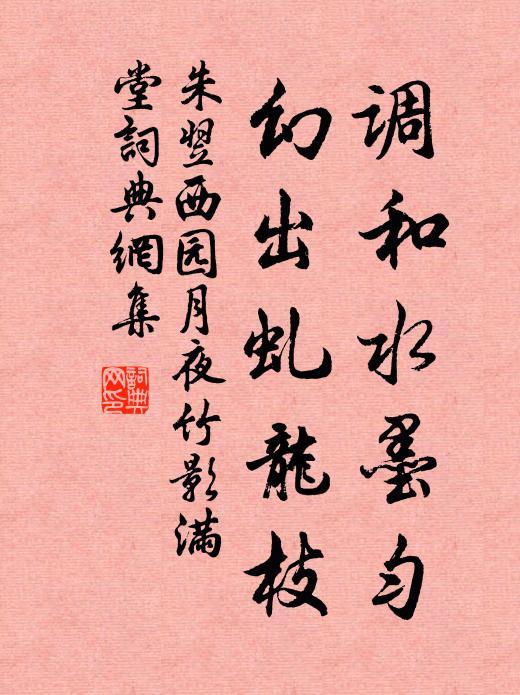 调和水墨匀
幻出虬龍枝
朱翌西园月夜竹影满
堂詞典網集
詞典
网印